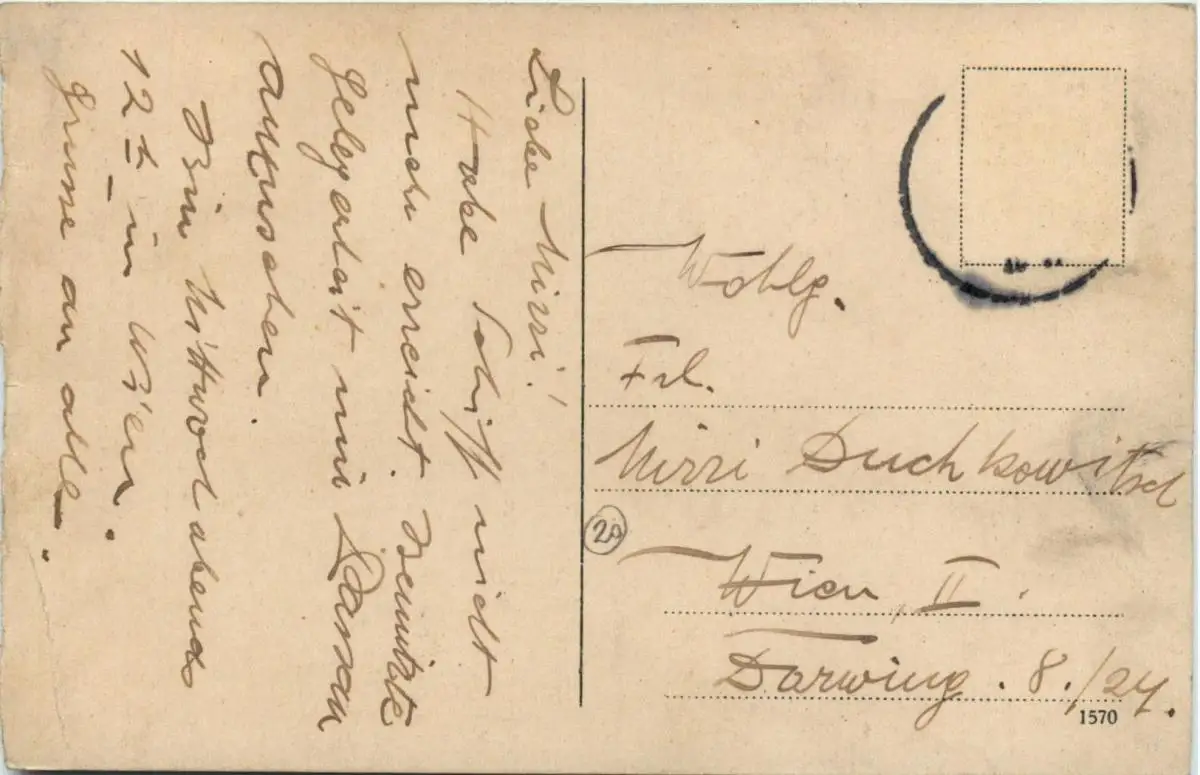 Liebe Mirri!
Habe Schiff nicht
mehr erreicht. Benütze
Gelegenheit mir Passau
anzusehen.
Bin Mittwoch abend
12 h in Wien.
Grüsse an alle.
Wohlg.
Frl.
Mirri Duchkowitsch
Wien, II.
Darwing. 8./24.
20
1570